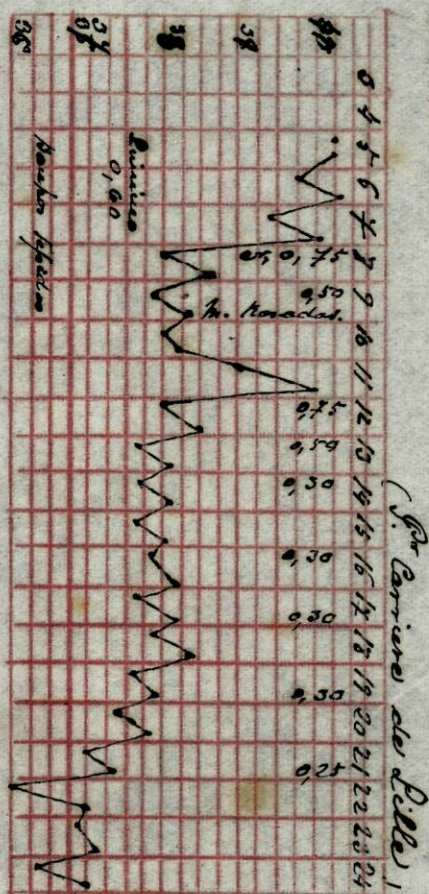 (Pr Carriere de Lille)
0 4 5 6 7 8 9 10 11 12 13 14 15 16 17 18 19 20 21 22 23 24
40
39
38
37
36
0,75
0,50
M. Rosadas.
0,75
0,50
0,30
0,30
0,30
0,30
0,25
Quinine
0,60